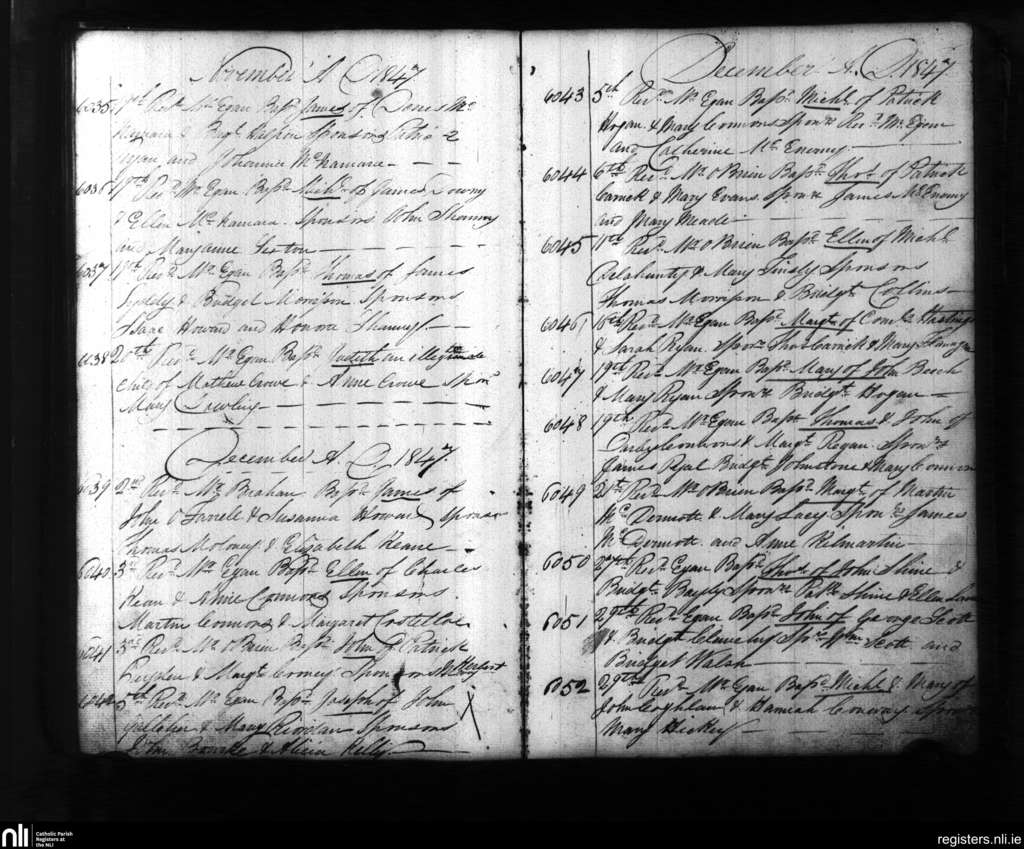 November A. D. 1847
6035 17th Revd. Mr. Egan Bapd. James of Denis Mc
Namara & Bridgt. Sponsons Patrick
Ryan and Johanna McNamara
6036 17th Revd. Mr. Egan Bapd. Michl. of James Downy
& Ellen McNamara. Sponsons John
and Maryanne Sexton
6037 17th Revd. Mr. Egan Bapd. Thomas of James
& Bridget Morrison Sponsons
Isaac Howard and Honora
6038 20th Revd. Mr. Egan Bapd. Judith an illegitimate
child of Mathew Crowe & Anne Crowe Spons
Mary Dowling
December A. D. 1847
6039 2nd Revd. Mr. Brahan Bapd. James of
John O Farrell & Susanna Howard Sponsors
Thomas Moloney & Elizabeth Keane
6040 3rd Revd. Mr. Egan Bapd. Ellen of Charles
Kean & Anne Connors Sponsons
Martin Connors & Margaret Costelloe
6041 3rd Revd. Mr. O Brien Bapd. John of Patrick
& Margt.
6042 5th Revd. Mr. Egan Bapd. Joseph of John
& Mary Riordan Sponsons
& Alicia Kelly
December A. D. 1847
6043 5th Revd. Mr. Egan Bapd. Michl. of Patrick
Hogan & Mary Connors Sponrs Revd. Mr. Egan
and Catherine McEnemy
6044 6th Revd. Mr. O Brien Bapd. Thos. of Patrick
Carrick & Mary Evans. Sponrs James McEnemy
and Mary Meade
6045 11th Revd. Mr. O Brien Bapd. Ellen of Michl.
Delahunty & Mary Tinsly Sponsons
Thomas Morrison & Bridgt. Collins
6046 16th Revd. Mr. Egan Bapd. Margt. of Hastings
& Sarah Ryan. Sponrs Thos Carrick & Mary Flanagan
6047 19th Revd. Mr. Egan Bapd. Mary of John Beech
& Mary Ryan Sponrs Bridgt. Hogan
6048 19th Revd. Mr. Egan Bapd. Thomas & John of
Darby Connors & Margt. Regan Sponrs
James Bridgt. Johnstone & Mary Connors
6049 21st Revd. Mr. O Brien Bapd. Margt. of Martin
McDermott & Mary Lacy Sponrs James
McDermott and Anne Kilmartin
6050 27th Revd. Egan Bapd. Thos. of John Shine &
Bridgt. Sponrs Patk. Shine & Ellen
6051 29th Revd. Egan Bapd. John of George Scott
& Bridget Sprs Scott and
Bridget Walsh
6052 29th Revd. Mr. Egan Bapd. Michl. & Mary of
John Coghlan & Hannah Conway Sponrs
Mary Hickey
nli Catholic Parish
Registers at
the NLI
registers.nli.ie